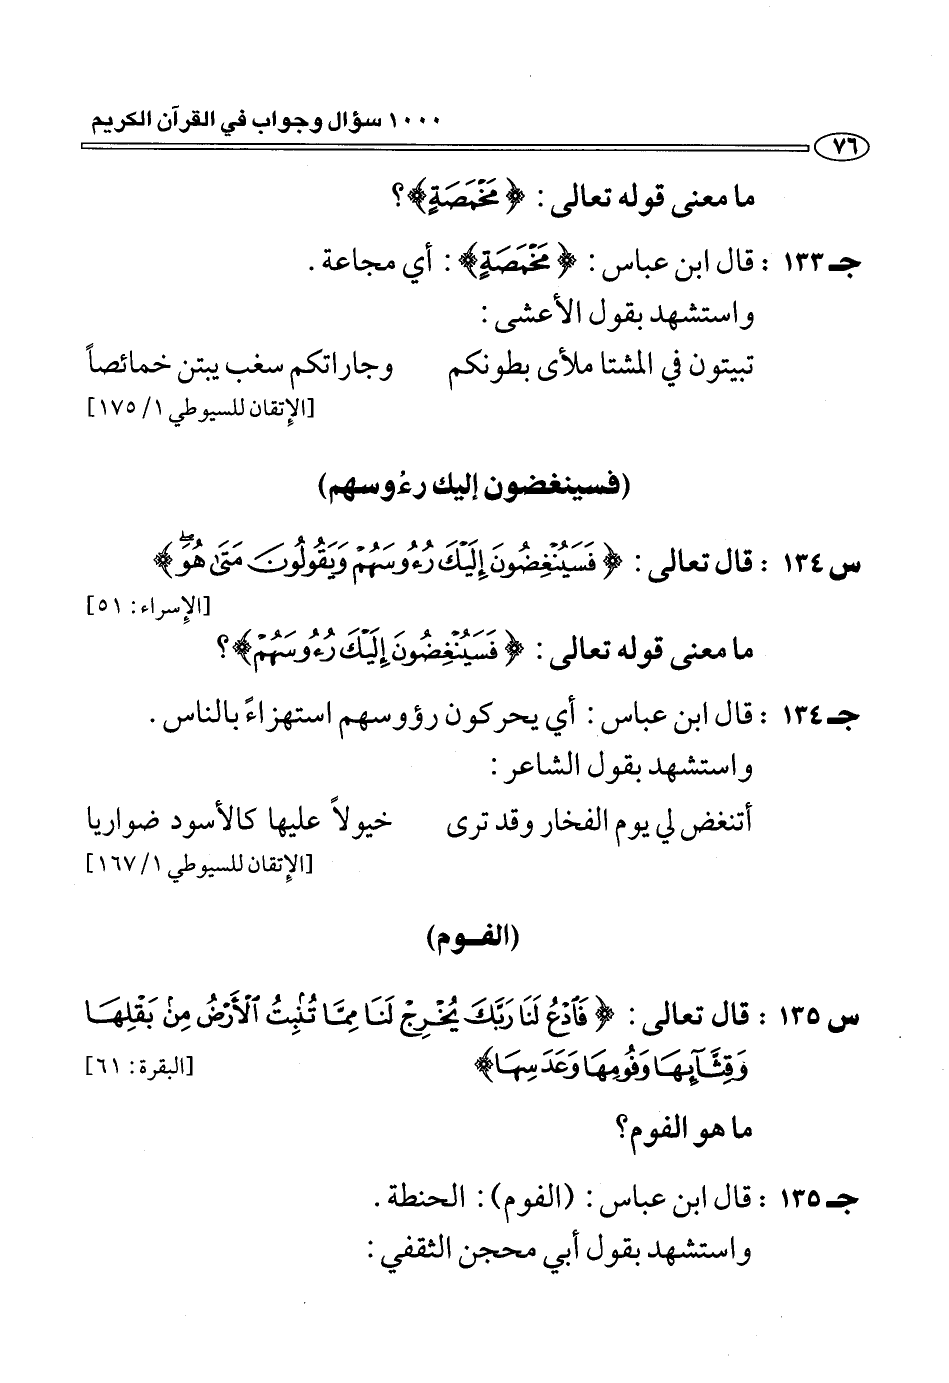 ١٠٠٠ سؤال وجواب في القرآن الكريم
٧٦
ما معنى قوله تعالى: ﴿مَخْمَصَةٍ﴾؟
جـ ١٣٣ : قال ابن عباس: ﴿مَخْمَصَةٍ﴾: أي مجاعة.
واستشهد بقول الأعشى:
تبيتون في المشتا ملأى بطونكم وجاراتكم سغب يبتن خمائصاً
[الإتقان للسيوطي ١/ ١٧٥]
(فسينغضون إليك رءُوسهم)
س ١٣٤ : قال تعالى: ﴿فَسَيُنْغِضُونَ إِلَيْكَ رُءُوسَهُمْ وَيَقُولُونَ مَتَىٰ هُوَۖ﴾
[الإسراء: ٥١]
ما معنى قوله تعالى: ﴿فَسَيُنْغِضُونَ إِلَيْكَ رُءُوسَهُمْ﴾؟
جـ ١٣٤ : قال ابن عباس: أي يحركون رؤوسهم استهزاءً بالناس.
واستشهد بقول الشاعر:
أتنغض لي يوم الفخار وقد ترى خيولاً عليها كالأسود ضواريا
[الإتقان للسيوطي ١/ ١٦٧]
(الفـوم)
س ١٣٥ : قال تعالى: ﴿فَٱدْعُ لَنَا رَبَّكَ يُخْرِجْ لَنَا مِمَّا تُنۢبِتُ ٱلْأَرْضُ مِنۢ بَقْلِهَا
وَقِثَّآئِهَا وَفُومِهَا وَعَدَسِهَا﴾ [البقرة: ٦١]
ما هو الفوم؟
جـ ١٣٥ : قال ابن عباس: (الفوم): الحنطة.
واستشهد بقول أبي محجن الثقفي: